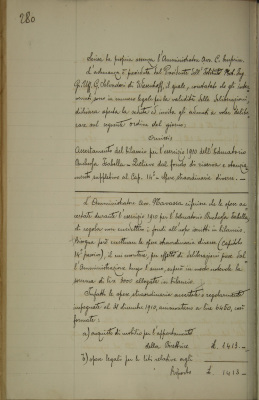 280
Scusa la propria assenza l'Amministratore Avv. C.
L'adunanza è presieduta dal Presidente dell'Istituto
Gr. Uff. G. Salvadori di Wiesenhoff, il quale, constatato che gli inter
venuti sono in numero legale per la validità delle deliberazioni,
dichiara aperta la seduta ed invita gli adunati a voler delibe
rare sul seguente ordine del giorno:
Omissis
Assestamento del bilancio per l'esercizio 1910 dell'Educatorio
Principessa Isabella - Prelievo dal fondo di riserva e stanzia
mento suppletivo al Cap. 14º - Spese straordinarie diverse -
L'Amministratore Avv. riferisce che le spese ac
certate durante l'esercizio 1910 per l'Educatorio Principessa Isabella,
di regola non eccedettero i fondi all'uopo iscritti in bilancio.
Bisogna però eccettuare le spese straordinarie diverse (Capitolo
14º passivo), il cui ammontare, per effetto di deliberazioni prese dal
l'Amministrazione lungo l'anno, superò in modo notevole la
somma di lire 3000 allogata in bilancio.
Infatti le spese straordinarie accertate e regolarmente
impegnate al 31 dicembre 1910, ammontano a lire 6450, così
formate:
a) acquisto di mobilio per l'appartamento
della Direttrice £. 1413.-
b) spese legali per le liti relative agli
Riporto £. 1413.-